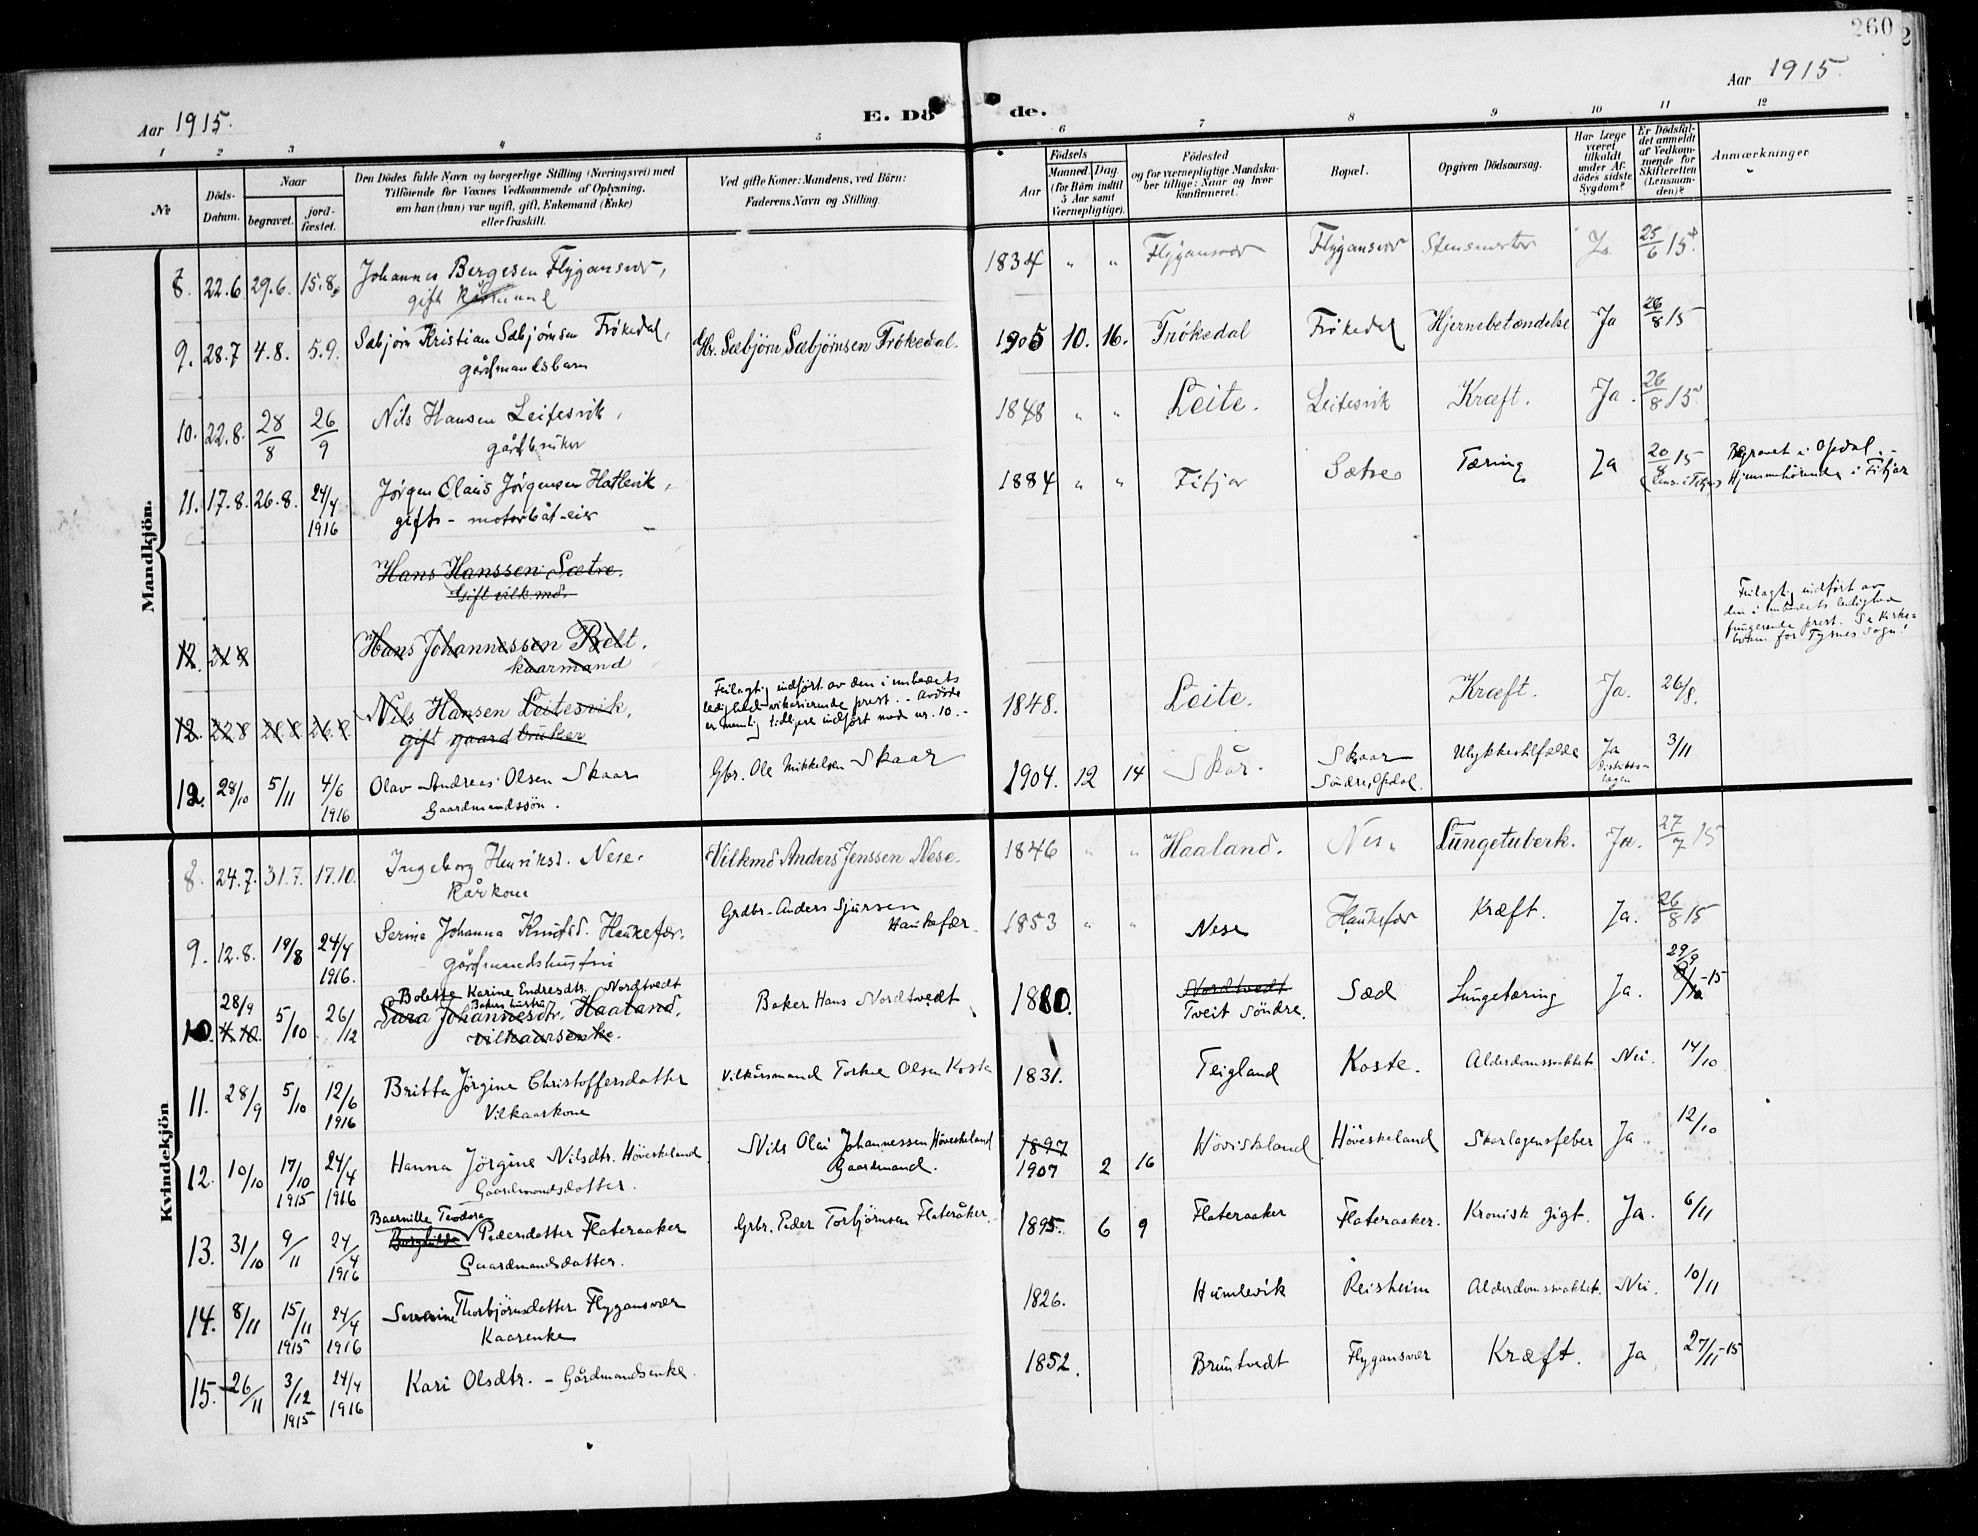 260
Aar 1915.
E. Dö de.
Aar 1915.
1 2 3 4 5 6 7 8 9 10 11 12
№
Döds-Datum.
Naar
begravet.
jord-fæstet.
Den Dödes fulde Navn og borgerlige Stilling (Næringsvei) med
Tilföiende for Voxnes Vedkommende af Oplysning,
om han (hun) var ugift, gift, Enkemand (Enke)
eller fraskilt.
Ved gifte Koner: Mandens, ved Börn:
Faderens Navn og Stilling.
Födsels
Aar
Maaned. Dag
(for Börn indtil
5 Aar samt
Værnepligtige).
Födested
og for værnepligtige Mandska-
ber tillige: Naar og hvor
konfirmeret.
Bopæl.
Opgiven Dödsaarsag.
Har Læge
været
tilkaldt
under Af-
dödes sidste
Sygdom?
Er Dödsfal-
det anmeldt
af Vedkom-
mende for
Skifteretten
(Lensman-
den)?
Anmærkninger
Mandkjön.
8. 22.6 29.6. 15.8. Johannes Bergesen Flygansvær, 1834 " " Flygansvær Flygansvær Ja 25/6 15
gift Kårmand
9. 28.7 4.8. 5.9. Sæbjørn Kristian Sæbjørnsen Frøkedal, Gbr. Sæbjørn Sæbjørnsen Frøkedal. 1905 10. 16. Frøkedal Frøkedal Hjernebetændelse Ja 26/8 15
gårdmandsbarn
10. 22.8. 28/8 26/9 Nils Hansen Leitesvik, 1848 " " Leite. Leitesvik Kræft. Ja. 26/8 15
gårdbruker
11. 17.8. 26.8. 24/4 1916 Jørgen Olaus Jørgensen Hatlevik, 1884 " " Fitjar Sætre Tæring Ja 20/8 15 Begravet i Opdal. -
gift - motorbåt-eier Lens. i Fitjar Hjemmehørende i Fitjar
Hans Hanssen Sætre.
Gift vilk.md.
12. Hans Johannessen Belt.
kaarmand
Feilagtig indført av
den i embedets ledighed
fungerende prest. Se Kirke-
boken for Tysnes Sogn!
12. 22 8 28.8 26.9. Nils Hansen Leitesvik, 1848. Leite. Kræft. Ja. 26/8.
gift gaardbruker
Feilagtig indført av den i embedets
ledighed vikarierende prest. - Avdøde
er nemlig tidligere indført med nr. 10. -
12. 28/10 5/11 4/6 1916 Olav Andreas Olsen Skaar Gbr. Ole Mikkelsen Skaar 1904. 12 14 Skår. Skaar Ulykkestilfælde Ja 3/11
Gaardmandssön. Söndre, Opdal. Distriktslægen
Kvindekjön
8. 24.7. 31.7. 17.10. Ingeborg Henriksd. Nese. Vilkmd Anders Jenssen Nese. 1846 " " Haaland. Nes. Lungetuberk. Ja. 27/7 15
Kårkone
9. 12.8. 19/8 24/4 1916. Serine Johanna Knutsd. Haukefær. Grdbr. Anders Sjursen Haukefær. 1853 " " Nese Haukefær Kræft. Ja. 26/8 15
gårdmandshustru
Bolette Karine Endresdtr. Nordtvedt
Bakers hustru
10. 28/9 4.10. 5/10 26/12 Sara Johannesdtr. Haaland. Baker Hans Nordtvedt 1880. Nordtvedt Tveit Söndre. Sæd Lungetæring Ja. 29/9 -15
Vilkaarsenke.
11. 28/9 5/10 12/6 1916 Britta Jørgine Christoffersdatter Vilkårsmand Torkel Olsen Koste 1831. Teigland Koste. Alderdomssvakhet Nei. 14/10
Vilkaarkone
12. 10/10 17/10 1915 24/4 1916 Hanna Jörgine Nilsdtr. Höveskeland Nils Olai Johannessen Höveskeland 1897 1907 2 16 Höviskeland Höveskeland Skarlagensfeber Ja. 12/10
Gaardmandsdatter. Gaardmand.
Baernille Teodora
13. 31/10 9/11 24/4 1916 Borghilda Pedersdatter Flateraaker Grbr. Peder Torbjørnsen Flateråker. 1895. 6 9 Flateraaker Flateraaker. Kronisk gigt. Ja. 6/11
Gaardmandsdatter.
14. 8/11 15/11 1915 24/4 1916 Severine Thorbjörnsdatter Flygansvær 1826. Humlevik Reisheim Alderdomssvakhet. Nei. 10/11
Kaarenke
15. 26/11 3/12 1915 24/4 1916 Kari Olsdtr. - Gårdmandsenke. 1852. Bruntvedt Flygansvær Kræft. Ja 27/11-15